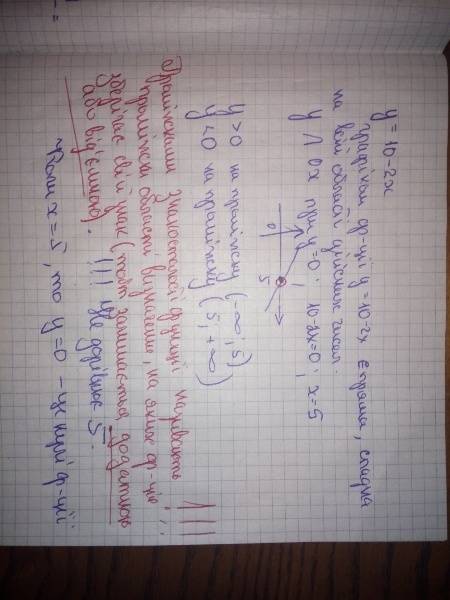 y = 10-2x
графіком ф-ції y = 10-2x є пряма, спадна
на всій області дійсних чисел.
y ∩ Ox при y=0; 10-2x=0; x=5
0 5
y>0 на проміжку (-∞; 5)
y<0 на проміжку (5; +∞)
Проміжками знакосталості функції називають
проміжки області визначення, на яких ф-ція
зберігає свій знак (тобто залишається додатною
або від'ємною). !!! не дорівнює 5.
Коли x=5, то y=0 - це нулі ф-ції
!!!